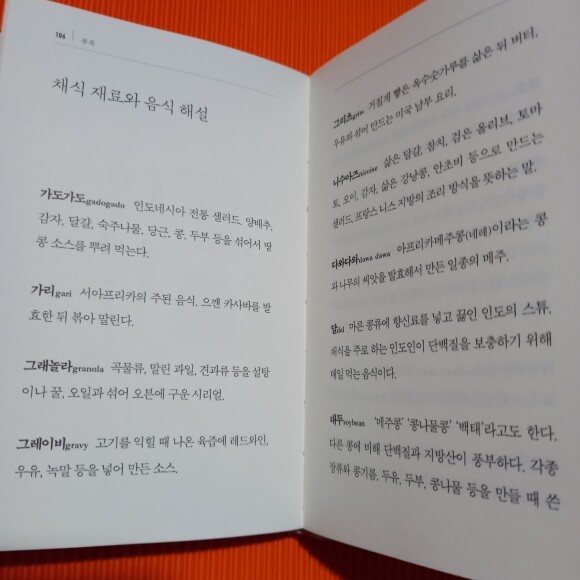 186 부록
채식 재료와 음식 해설
가도가도gadogado 인도네시아 전통 샐러드. 양배추,
감자, 달걀, 숙주나물, 당근, 콩, 두부 등을 섞어서 땅
콩 소스를 뿌려 먹는다.
가리gari 서아프리카의 주된 음식. 으깬 카사바를 발
효한 뒤 볶아 말린다.
그래놀라granola 곡물류, 말린 과일, 견과류 등을 설탕
이나 꿀, 오일과 섞어 오븐에 구운 시리얼.
그레이비gravy 고기를 익힐 때 나온 육즙에 레드와인,
우유, 녹말 등을 넣어 만든 소스.
그리츠grits 거칠게 빻은 옥수숫가루를 삶은 뒤 버터,
우유와 섞어 만드는 미국 남부 요리.
니수아즈nicoise 삶은 달걀, 참치, 검은 올리브, 토마
토, 오이, 감자, 삶은 강낭콩, 안초비 등으로 만드는
샐러드. 프랑스 니스 지방의 조리 방식을 뜻하는 말.
다와다와dawa dawa 아프리카메주콩(네레)이라는 콩
과 나무의 씨앗을 발효해서 만든 일종의 메주.
달dal 마른 콩류에 향신료를 넣고 끓인 인도의 스튜.
채식을 주로 하는 인도인이 단백질을 보충하기 위해
매일 먹는 음식이다.
대두soybean '메주콩' '콩나물콩' '백태'라고도 한다.
다른 콩에 비해 단백질과 지방산이 풍부하다. 각종
장류와 콩기름, 두유, 두부, 콩나물 등을 만들 때 쓴